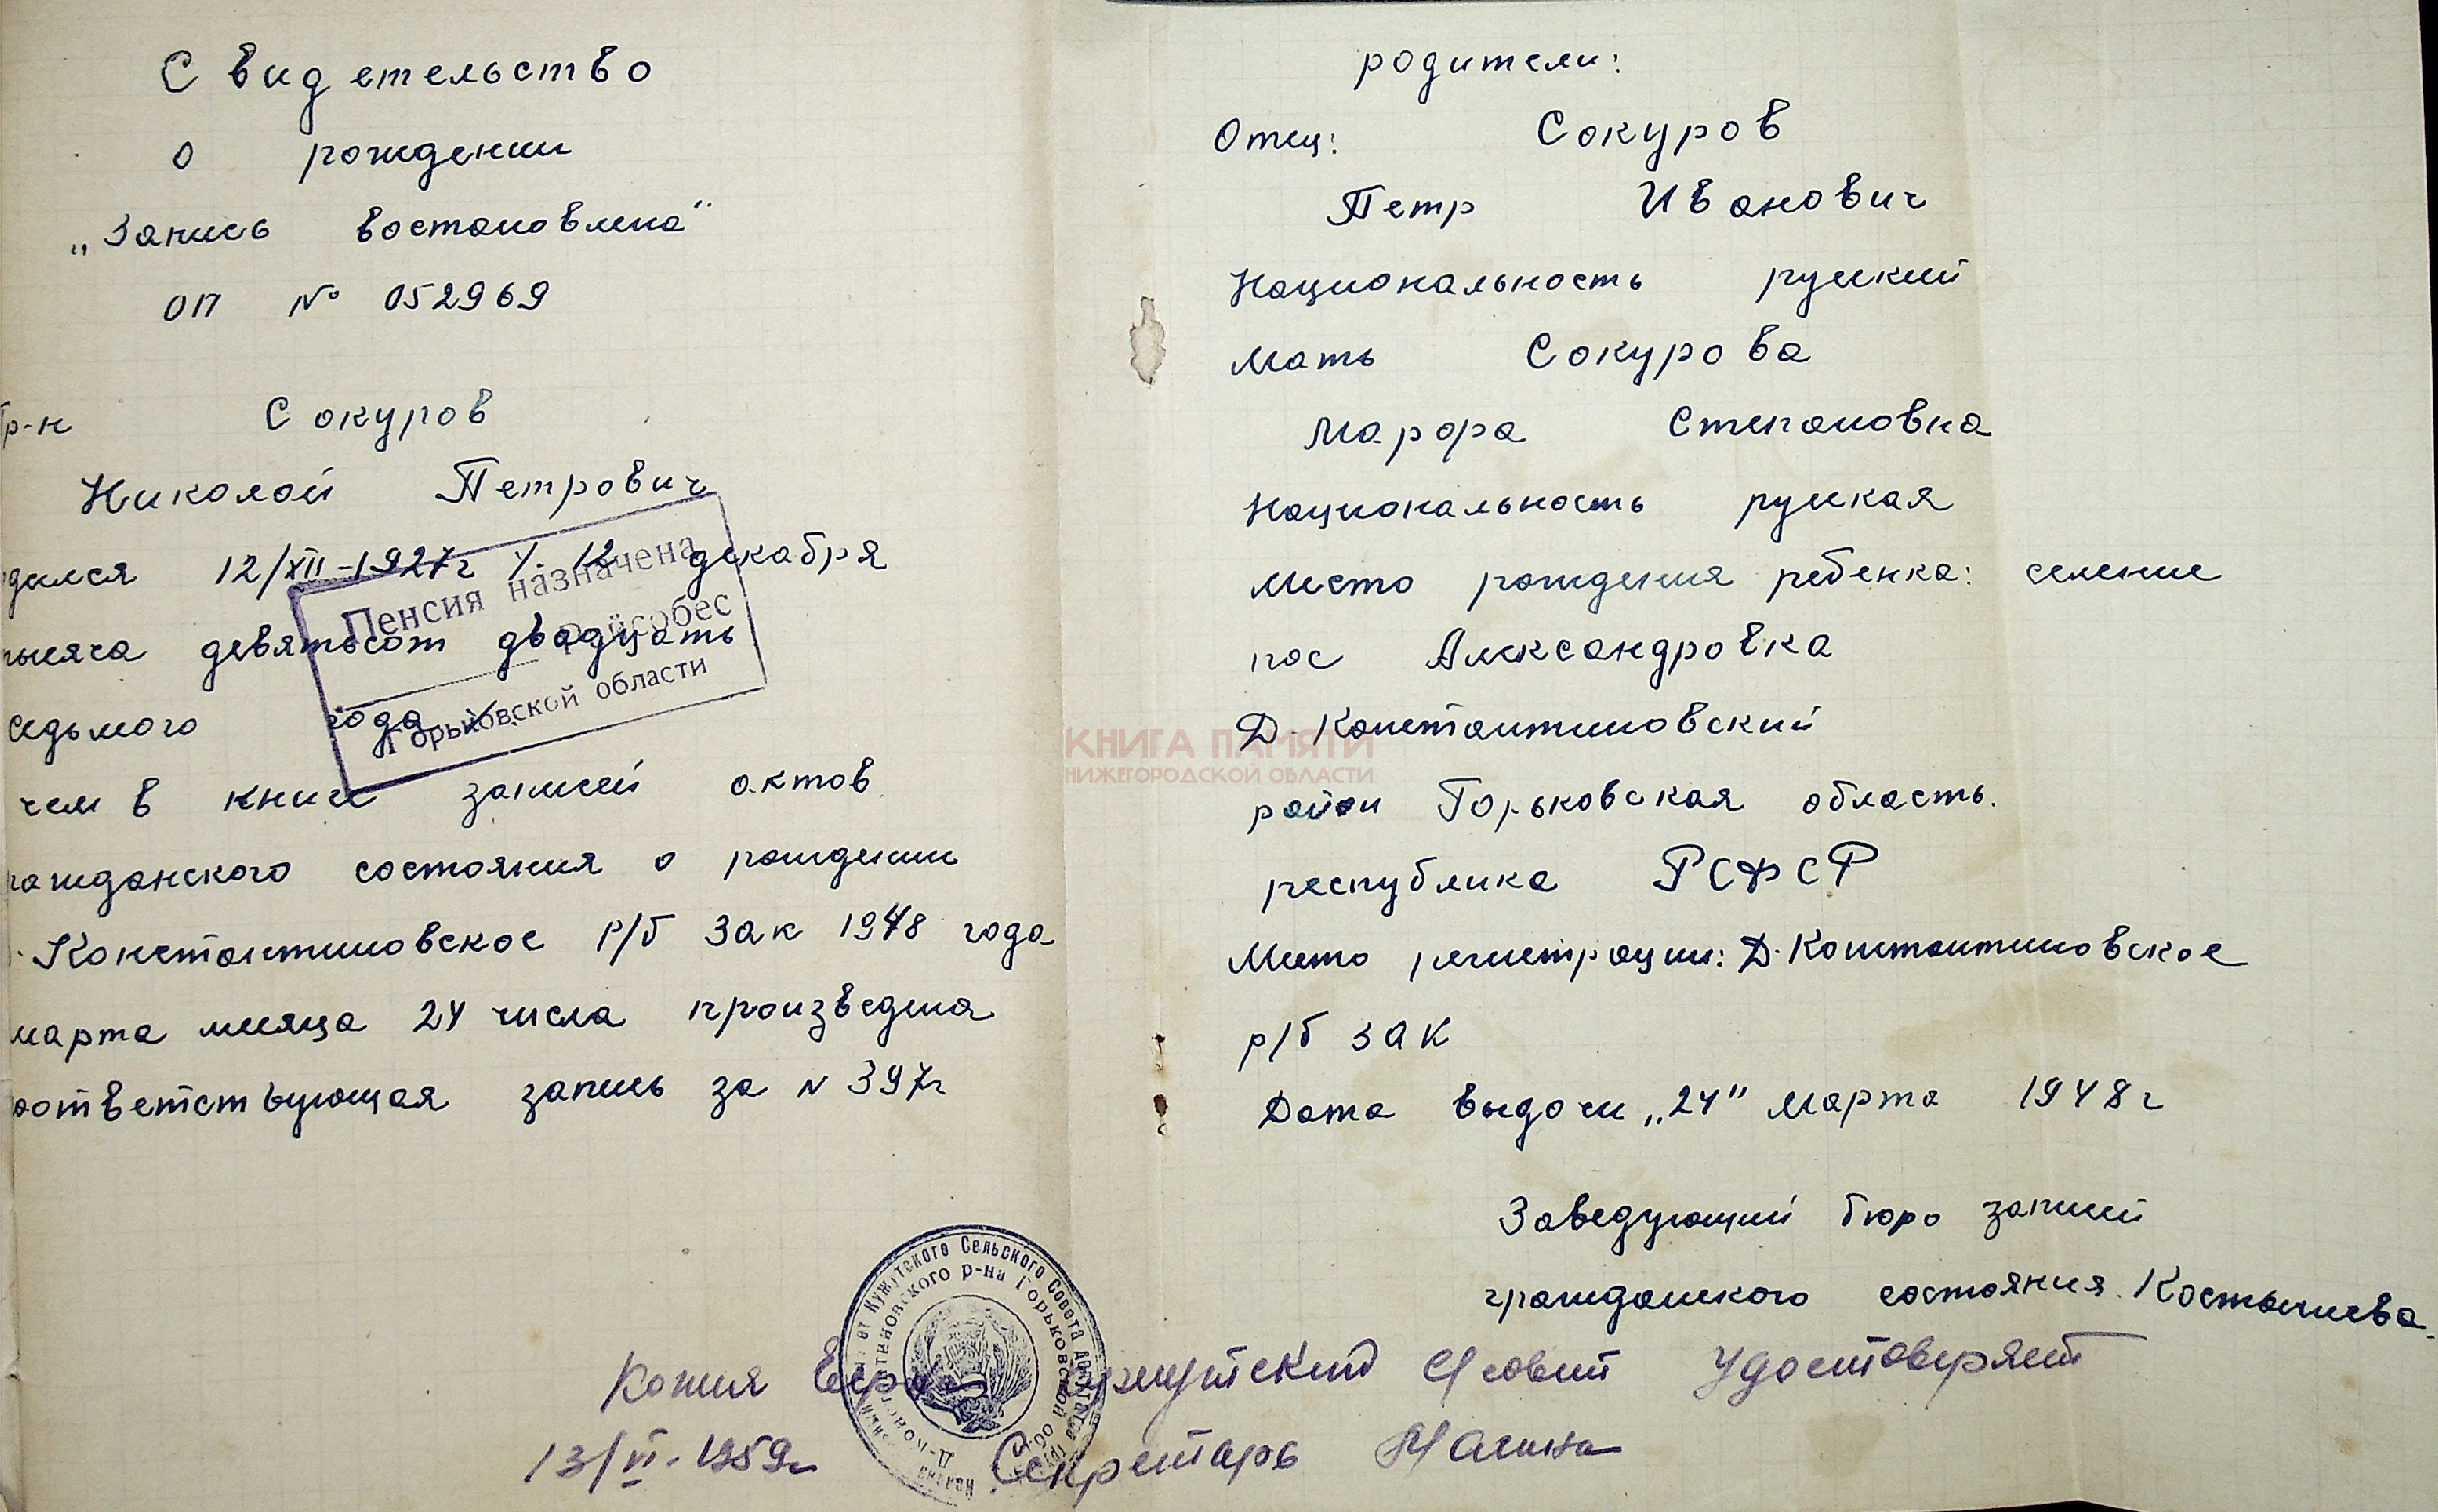 Свидетельство
о рождении
„Запись востановлена“
ОП № 052969
Гр-н Сокуров
Николай Петрович
дился 12/XII-1927г 12 декабря
тысяча девятьсот двадцать
седьмого года
чем в книге записей актов
гражданского состояния о рождении
Константиновское р/б зак 1948 года
марта месяца 24 числа произведена
соответствующая запись за N 397г
Пенсия назначена
райсобес
Горьковской области
родители:
Отец: Сокуров
Петр Иванович
Национальность руский
Мать Сокурова
Марфа Степановна
Национальность руская
Место рождения ребенка: селение
пос Александровка
Д. Константиновский
район Горьковская область.
республика РСФСР
Место регистрации: Д. Константиновское
р/б зак
Дата выдачи „24" марта 1948г
Заведующий бюро записей
гражданского состояния.
КНИГА ПАМЯТИ
НИЖЕГОРОДСКОЙ ОБЛАСТИ
Копия Удостоверяет
13/VI. 1959г Секретарь
Кужутского Сельского Совета
р-на Горьковской обл.